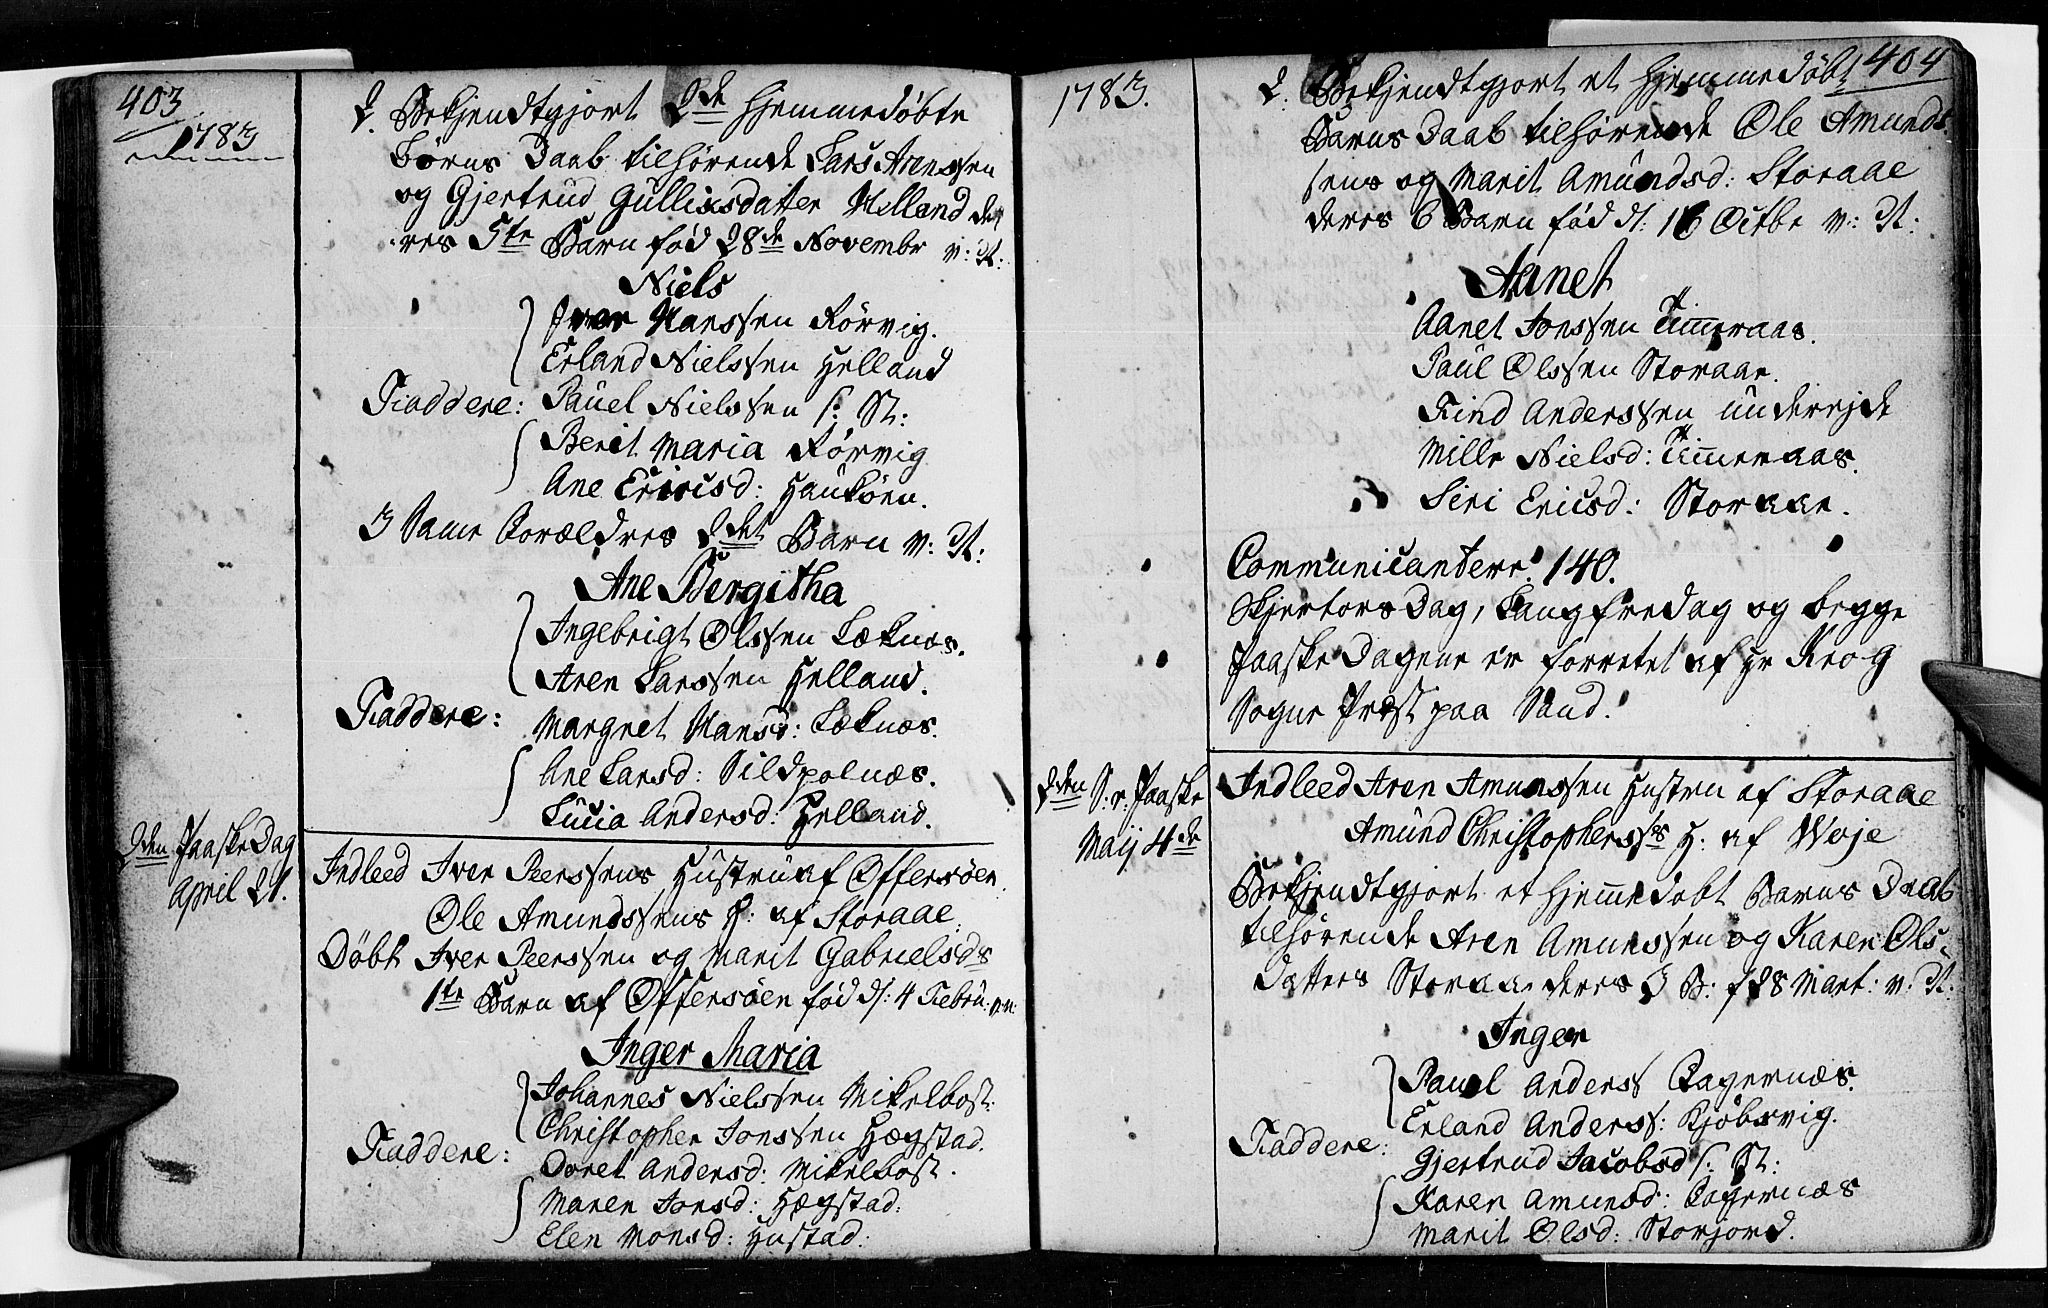 403
1783
2. Bekjendtgjort 2de Hjemmedøbte
Børns Daab tilhørende Lars Arenssen
og Gjertrud Gullisdatter Helland de¬
res 5te Barn fød 28de Novembr v: N:
Niels
Iver Hanssen Rørvig.
Erland Nielssen Helland
Faddere: Pauel Nielssen S: St:
Berit Maria Rørvig
Ane Ericsd: Haukøen.
3 Same Forældres 2det Barn v: N:
Ane Bergitha
Ingebrigt Olssen Læknæs.
Aren Larssen Helland.
Faddere:
Margret Hansd: Læknæs.
Ane Larsd: Sildpolnæs.
Lucia Andersd: Helland.
2den PaaskeDag
April 21.
Indleed Iver Peerssens Hustru af Offersøen.
Ole Amundssens H: af Storaae.
Døbt Iver Peerssen og Marit Gabrielsds
1te Barn af Offersøen fød d: 4 Febru: v: N:
Inger Maria
Johannes Nielssen Mikelbost:
Christopher Jonssen Hægstad.
Faddere:
Doret Andersd: Mikelbost.
Maren Jonsd: Hægstad:
Elen Monsd: Hustad:
1783.
404
2. Bekjendtgjort et Hjemmedøbt
Barns Daab tilhørende Ole Amunds¬
sens og Marit Amundsd: Storaae
deres 6 Barn fød d: 16 Octbr v: N:
Aanet
Aanet Jonssen Timmeraas.
Paul Olssen Storaae.
Find Anderssen Underejde
Mille Nielsd: Timmeraas.
Siri Ericsd: Storaae.
Communicantere. 140.
SkjertorsDag, Langfredag og begge
Paaske Dagene er forretet af Hr Krog
Sogne Præst paa Sand.
2den S: e: Paaske
Maij 4de
Indleed Aren Amunssen Hustru af Storaae
Amund Christopherss:s H: af Woje
Bekjendtgjort et Hjemmedøbt Barns Daab
tilhørende Aren Amunssen og Karen Ols¬
Datters Storaae deres 3 B: f 28 Mart: v: N:
Inger
Pauel Anderss Fagernæs.
Erland Anderss: Kjøbsvig.
Faddere:
Gjertrud Jacobsd S: St:
Karen Amunsd: Fagernæs
Marit Olsd: Storjord.